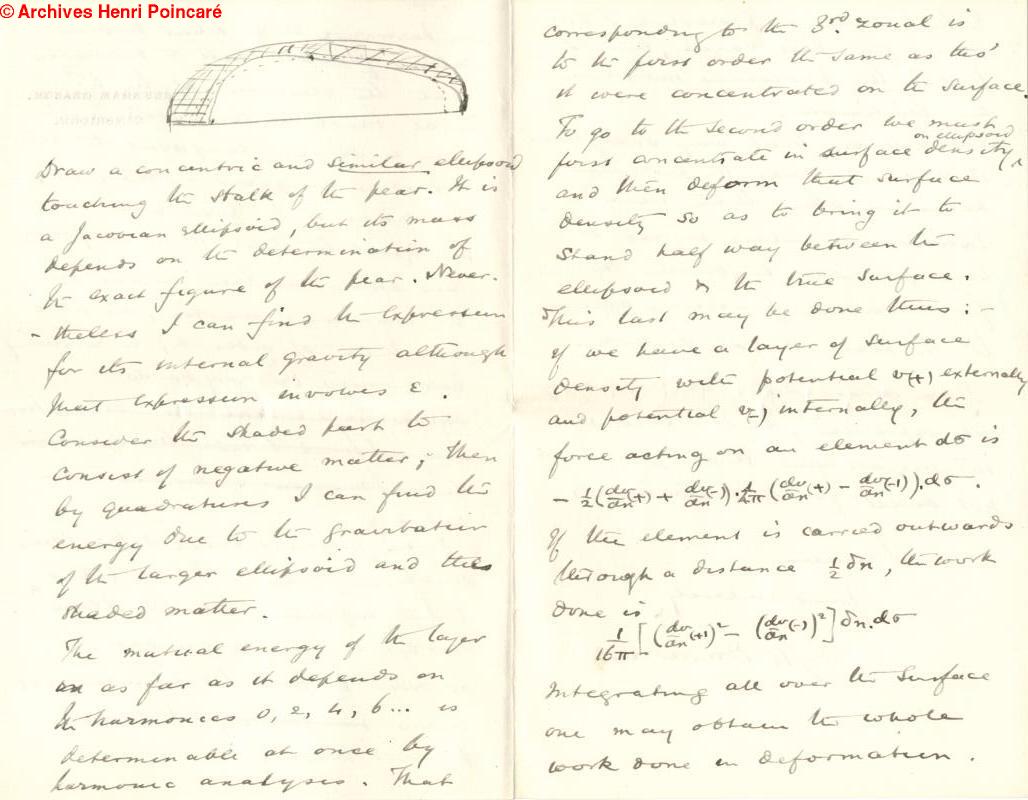 © Archives Henri Poincaré
Draw a concentric and similar ellipsoid
touching the stalk of the pear. It is
a Jacobian ellipsoid, but its mass
depends on the determination of
the exact figure of the pear. Never-
-theless I can find the expression
for its internal gravity although
that expression involves ε.
Consider the shaded part to
consist of negative matter; then
by quadratures I can find the
energy due to the gravitation
of the larger ellipsoid and this
shaded matter.
The mutual energy of the layer
as far as it depends on
the harmonics 0, 2, 4, 6... is
determinable at once by
harmonic analysis. That
corresponding to the 3rd. zonal is
to the first order the same as tho'
it were concentrated on the surface.
To go to the second order we must
first concentrate in surface density on ellipsoid,
and then deform that surface
density so as to bring it to
stand half way between the
ellipsoid & the true surface.
This last may be done thus: –
If we have a layer of surface
density with potential v(+) externally
and potential v(-) internally, the
force acting on an element dσ is
– 1/2 (dv/dn (+) + dv/dn (-)) . 1/4π (dv/dn (+) – dv/dn (-)) . dσ.
If the element is carried outwards
through a distance 1/2 δn, the work
done is
1/16π [(dv/dn (+))² – (dv/dn (-))²] δn. dσ
Integrating all over the surface
one may obtain the whole
work done in deformation.